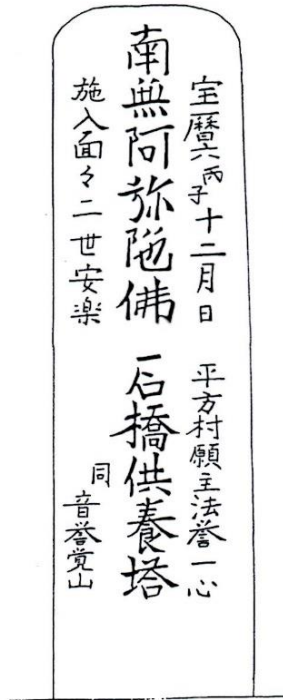 宝暦六丙子十二月日　平方村願主法誉一心
南無阿弥陁佛　石橋供養塔
施入面々二世安楽　同　音誉覚山